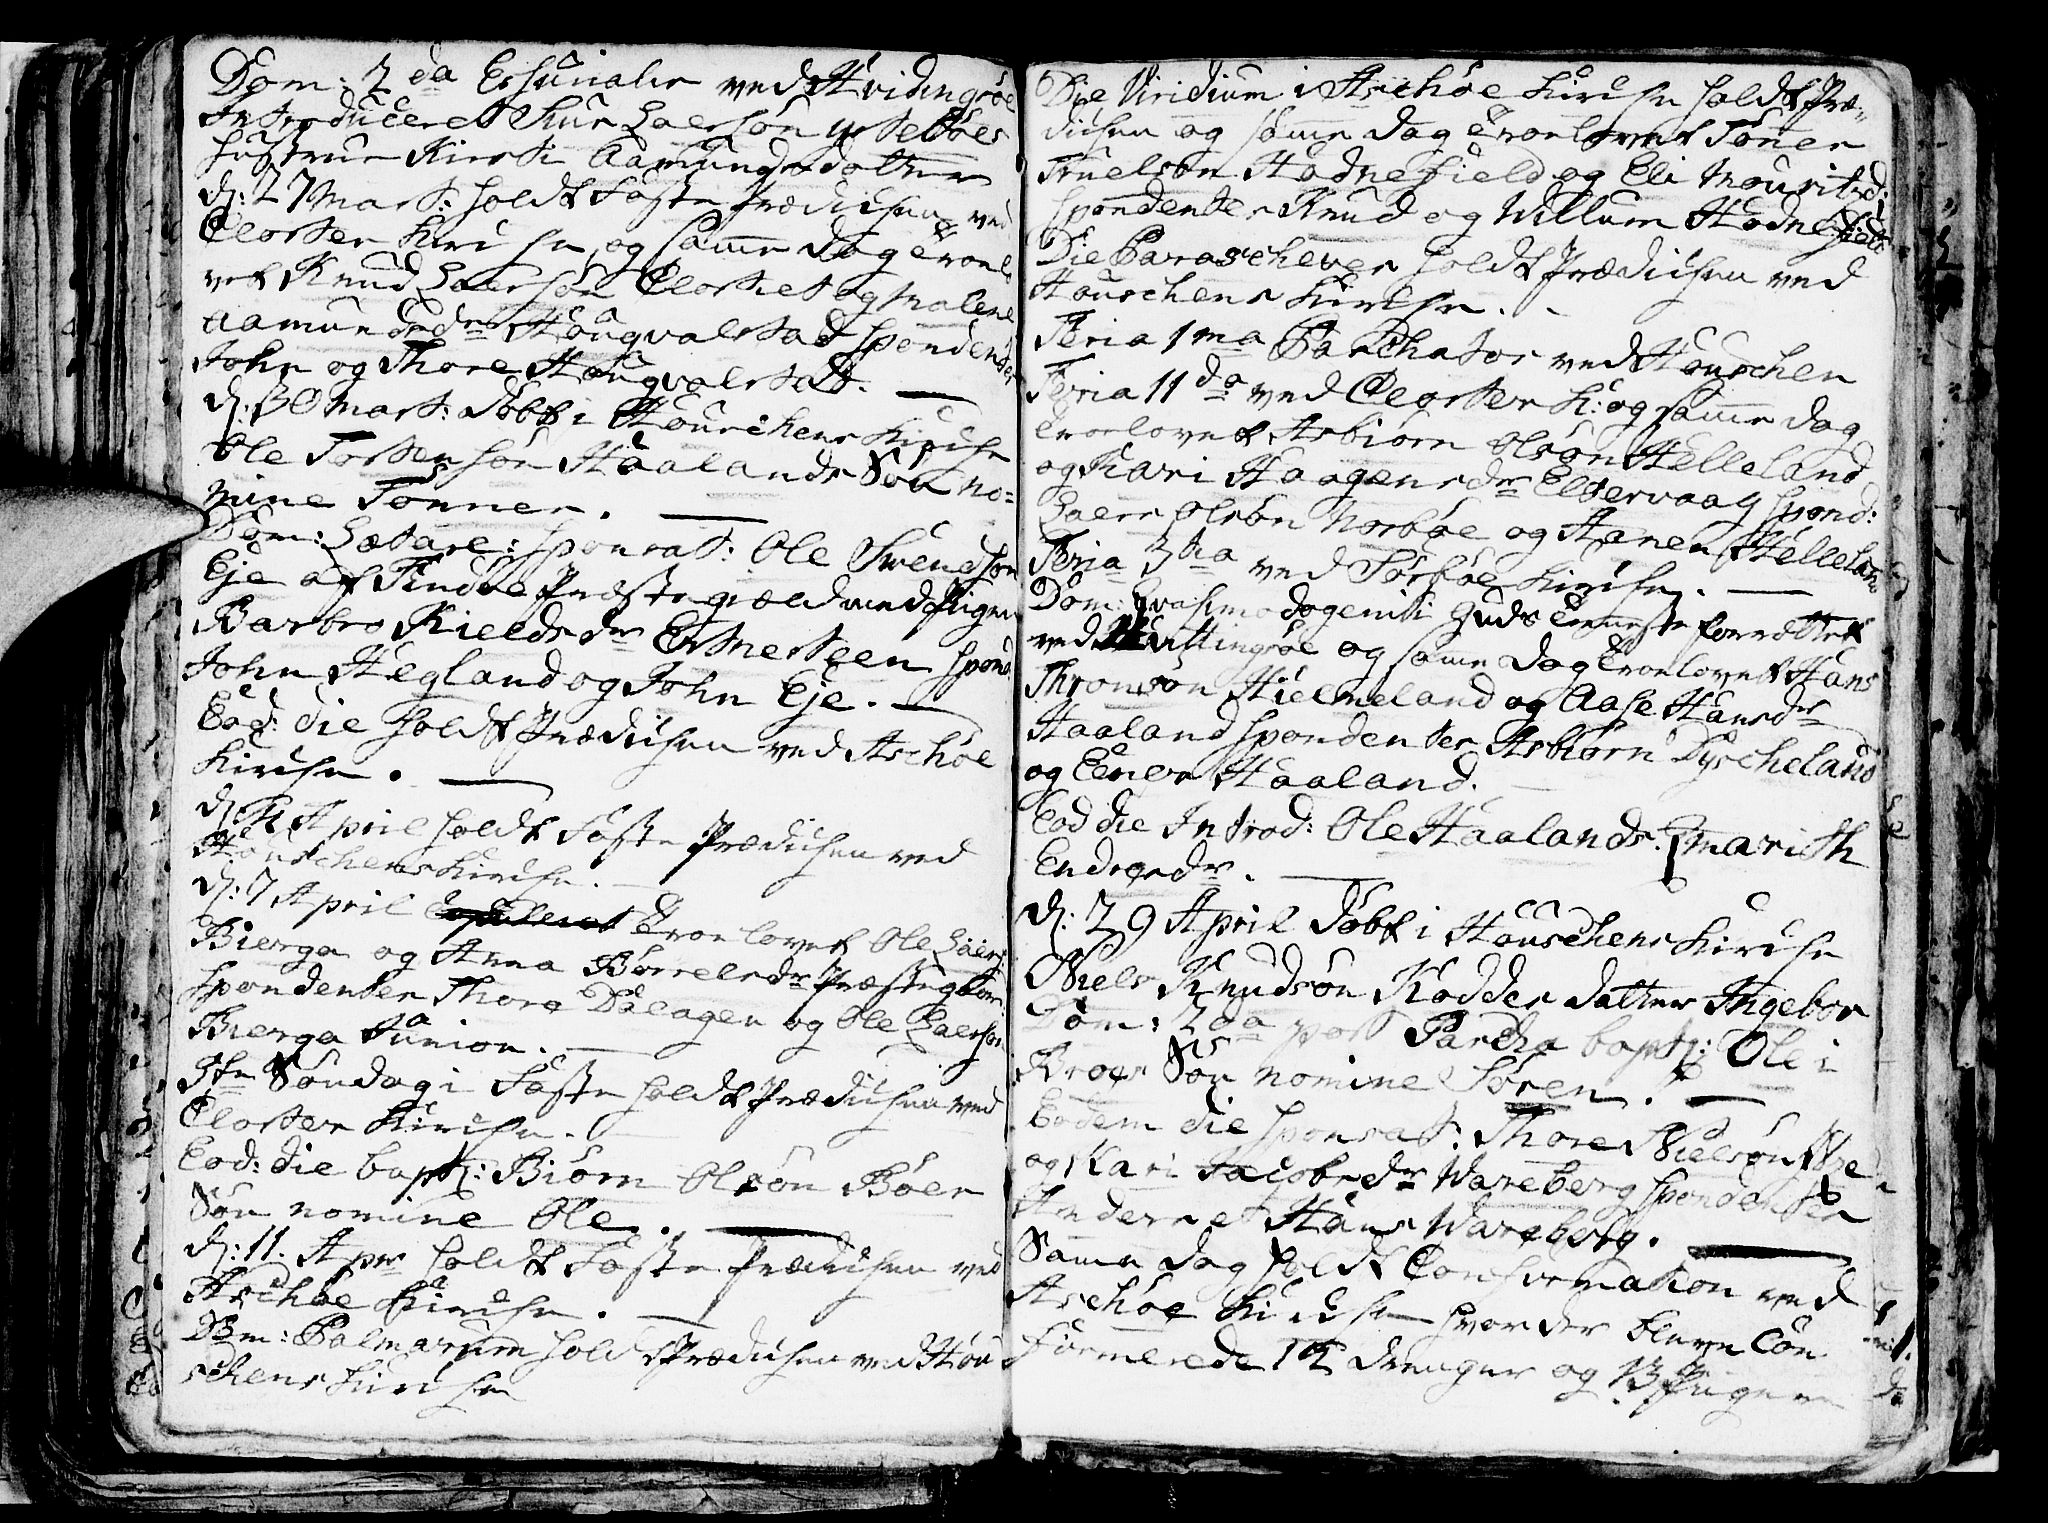 Dom: 2da Esurialis ved Hvidingsöe
Introduceret Siur Laersön Ysteböes
hustrue Kirsti Aamundsdatter
d: 27 Mart: holdt Faste Prædichen ved
Closter Kirche, og samme dag troelo
vet Knud Laersön Closteret og Malene
Aamundsdr Hougvalstad sponderter
John og Thore Hougvalstad.
d: 30 Mart: döbt i Houschens Kirche
Ole Torstensön Haalands Sön no=
mine Tönnes.
Dom: Lætare: sponsat: Ole Svendsön
Eje af Findöe Præstegield med Pigen
Barbro Kieldsdr Eschesteen spond:
John Hegland og John Eje.
Eod: die holdt Prædichen ved Aschöe
Kirche.
d: 4 April holdt Faste Prædichen ved
Houschens Kirche.
d: 7 April Troelovet Ole Laers:
Bierga og Anna Börrelsdr Præstegaar:
sponderter Thore Dalagen og Ole Laersön
Bierga Junior.
5te Söndag i Faste holdt Prædichen ved
Closter Kirche.
Eod: die bapt: Biörn Olsön Böes
Sön nomine Ole.
d: 11. Apr holdt Faste Prædichen ved
Aschöe Kirche.
Dom: Palmarum holdt Prædichen ved Hou
schens Kirche
Die Viridium i Aschöe Kirche holdt Præ=
dichen og samme dag troelovet Tönes
Truelsön Hodnefield og Eli Mouritsd:
sponderter Knud og Willum Hodnefield
Die Parascheves holdt Prædichen ved
Houschens Kirche.
Feria 1ma Paschatos ved Houschen
Feria 11da ved Closter K: og samme dag
troelovet Asbiörn Olsön Helleland
og Kari Haagensdr Eltervaag spond:
Laers Olsön Norböe og Aanen Helleland
Feria 3tia ved Sörböe Kirche.
Dom: Qvasimodogeniti Guds tieneste forrettet
ved Hvittingsöe og samme dag troelovet Hans
Thronsön Hielmeland og Aase Hansdr
Haaland sponderter Asbiörn Dyscheland
og Eener Haaland.
Eod die Introd: Ole Haalands: Q: Marith
Endresdr.
d: 29 April döbt i Houschens Kirche
Niels Knudsön Kodder datter Ingebor
Dom: 2da post Pascha bapt: Ole i
Broes Sön nomine Sören.
Eodem die sponsat: Thore Nielsön
og Kari Jacobsdr Wareberg sponderter
Anders et Hans Wareberg.
Samme dag holdt Confirmation ved
Aschöe Kirche hvor der bleve Con
firmerede 14 drenger og 13 Piger